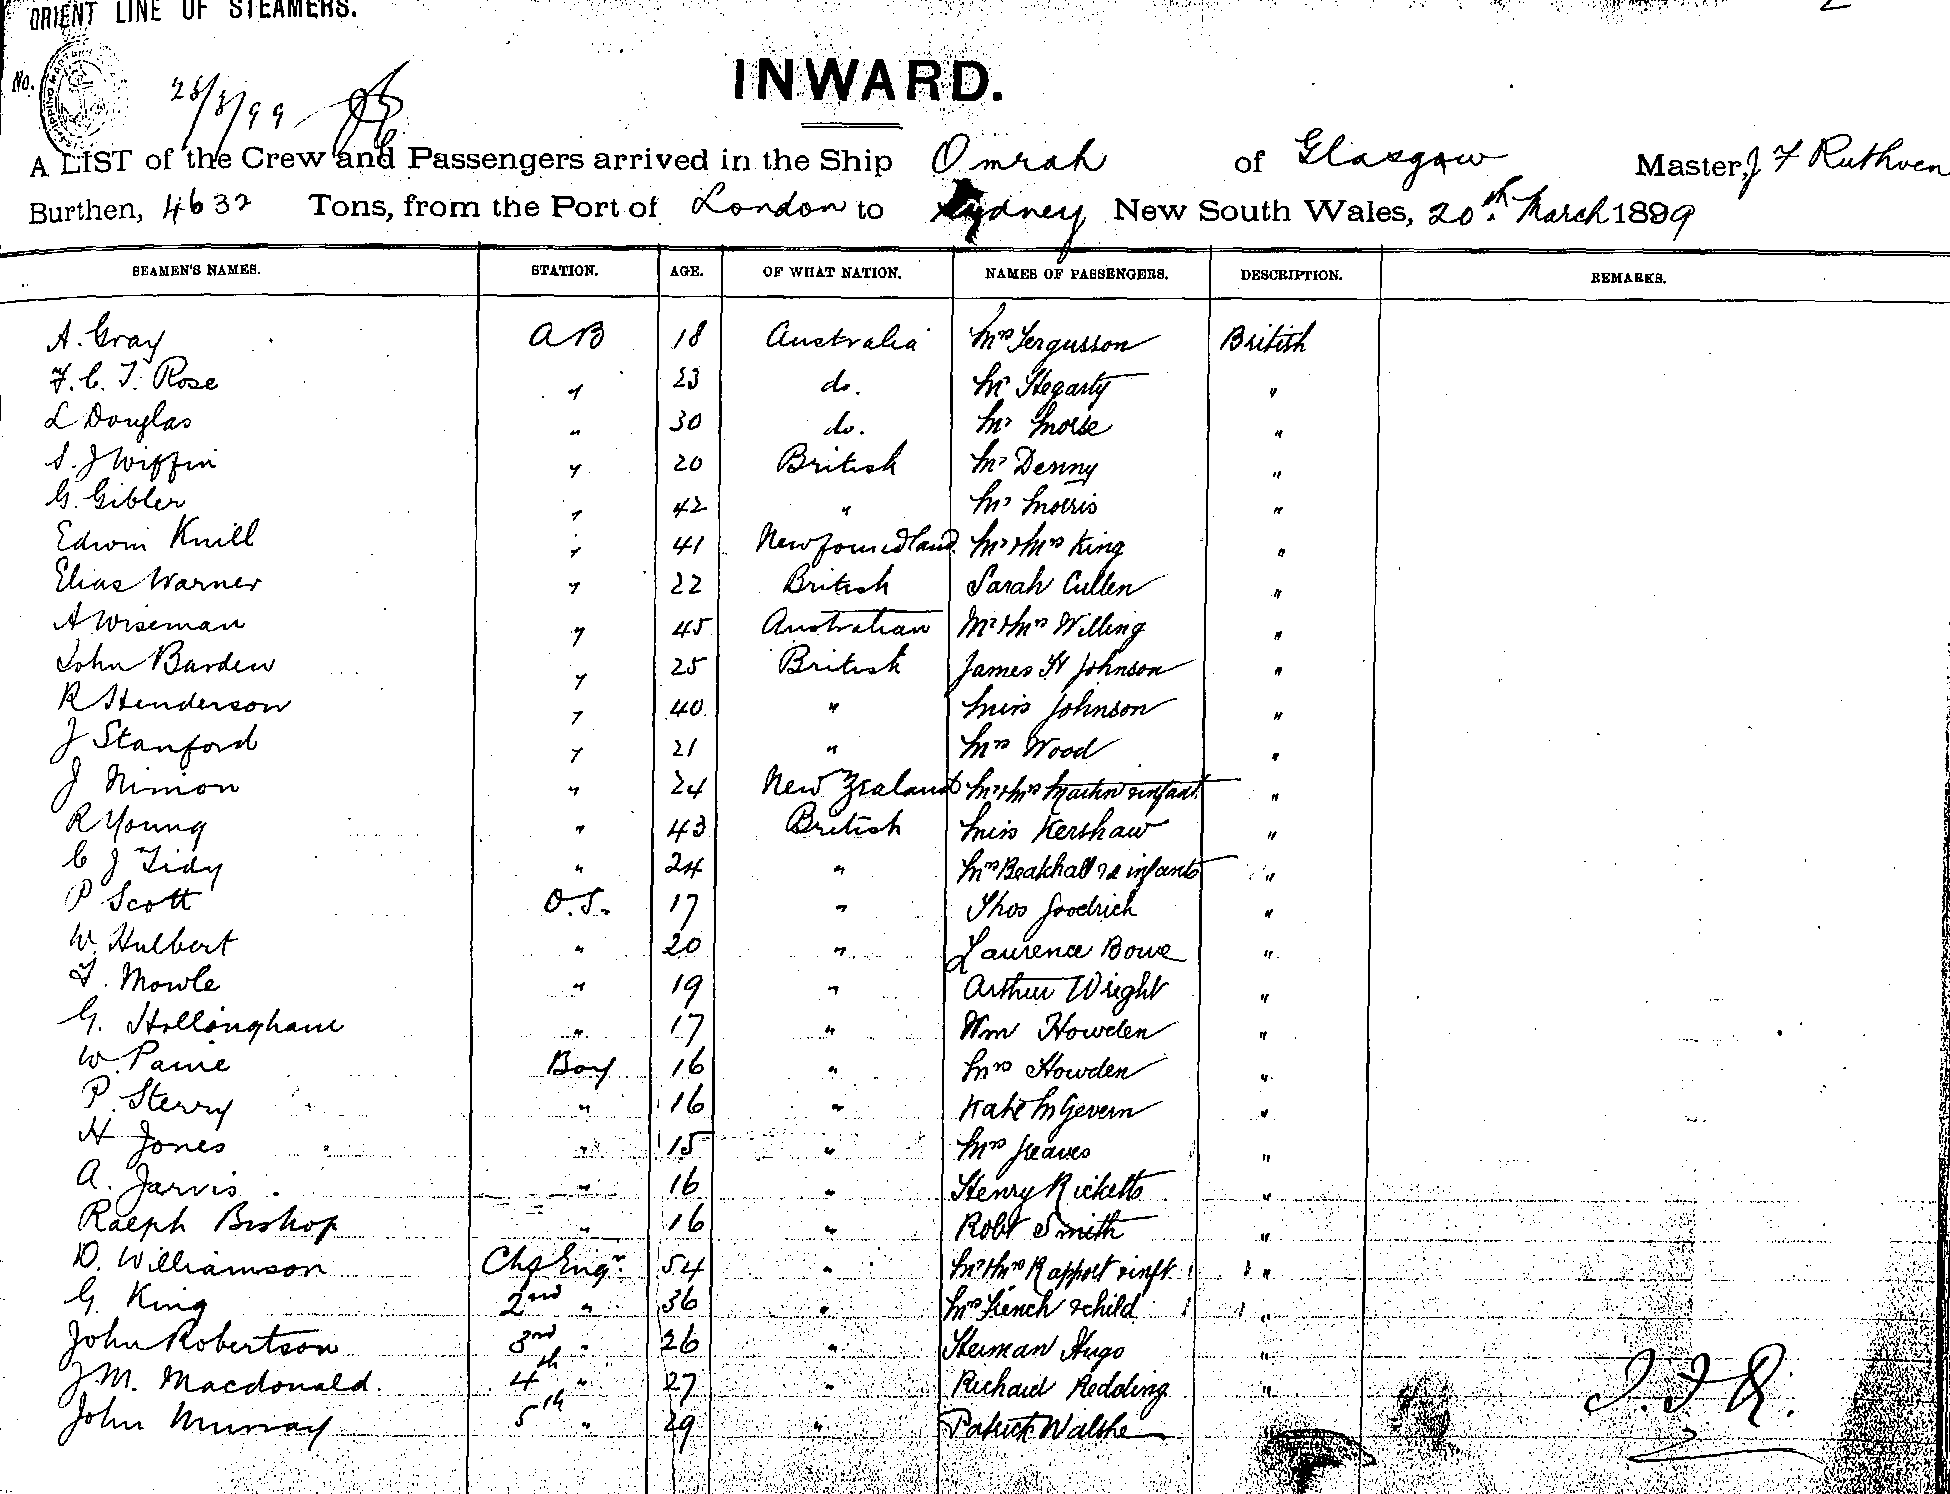 ORIENT LINE OF STEAMERS.
2
No.
INWARD.
A LIST of the Crew and Passengers arrived in the Ship Omrah of Glasgow Master, J F Ruthven
Burthen, 4632 Tons, from the Port of London to Sydney New South Wales, 20th March 1899
SEAMEN'S NAMES. STATION. AGE. OF WHAT NATION. NAMES OF PASSENGERS. DESCRIPTION. REMARKS.
A. Gray AB 18 Australia Mrs Fergusson British
F. C. T. Rose " 23 do. Mr Hegarty "
L Douglas " 30 do. Mr Morse "
S. J Wiffin " 20 British Mr Denny "
G. Gibler " 42 " Mr Morris "
Edwin Knill " 41 Newfoundland Mr & Mrs King "
Elias Warner " 22 British Sarah Cullen "
A Wiseman " 45 Australian Mr & Mrs Willing "
John Barden " 25 British James H Johnson "
R Henderson " 40 " Miss Johnson "
J Stanford " 21 " Mrs Wood "
J Nimon " 24 New Zealand Mr & Mrs Martin & infant "
R Young " 43 British Miss Kershaw "
C J Tidy " 24 " Mrs Beakhall & 2 infants "
P Scott O.S. 17 " Thos Goodrich "
W. Hulbert " 20 " Laurence Bowe "
F. Mowle " 19 " Arthur Wright "
G. Hollingham " 17 " Wm Howden "
W. Paine Boy 16 " Mrs Howden "
P. Sterry " 16 " Kate McGevern "
H Jones " 15 " Mrs Greaves "
A. Jarvis " 16 " Henry Ricketts "
Ralph Bishop " 16 " Robt Smith "
D. Williamson Chf Engr. 54 " Mr & Mrs Rapport & inft "
G. King 2nd " 36 " Mrs French & child "
John Robertson 3rd " 26 " Herman Hugo "
J M. Macdonald 4th " 27 " Richard Redding "
John Murray 5th " 29 " Patrick Walshe "
J. F. R.